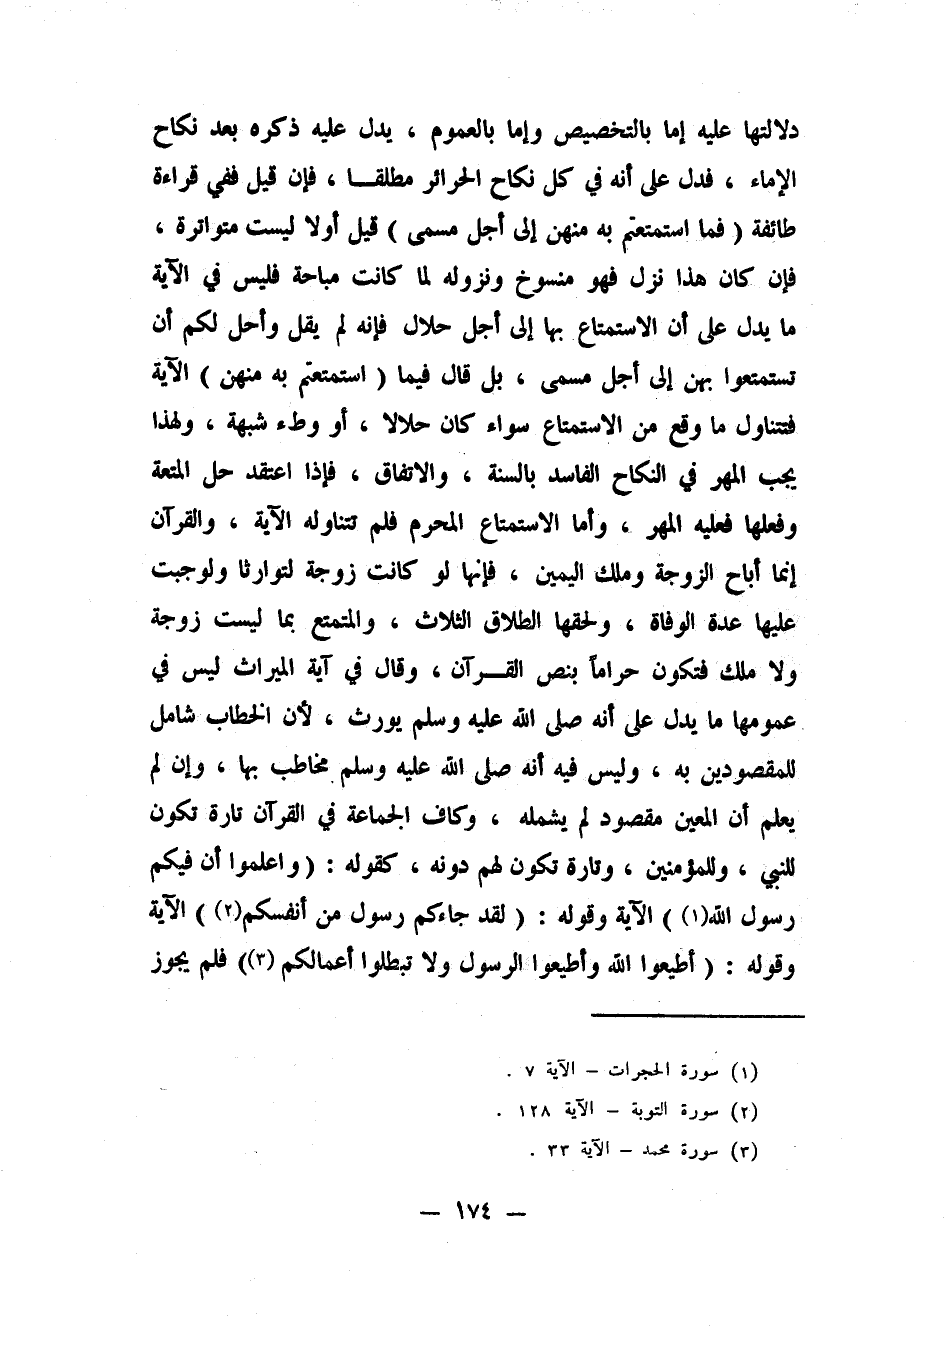 دلالتها عليه إما بالتخصيص وإما بالعموم ، يدل عليه ذكره بعد نكاح
الإماء ، فدل على أنه في كل نكاح الحرائر مطلقـــا ، فإن قيل ففي قراءة
طائفة ( فما استمتعتم به منهن إلى أجل مسمى ) قيل أولا ليست متواترة ،
فإن كان هذا نزل فهو منسوخ ونزوله لما كانت مباحة فليس في الآية
ما يدل على أن الاستمتاع بها إلى أجل حلال فإنه لم يقل وأحل لكم أن
تستمتعوا بهن إلى أجل مسمى ، بل قال فيما ( استمتعتم به منهن ) الآية
فتتناول ما وقع من الاستمتاع سواء كان حلالا ، أو وطء شبهة ، ولهذا
يجب المهر في النكاح الفاسد بالسنة ، والاتفاق ، فإذا اعتقد حل المتعة
وفعلها فعليه المهر ، وأما الاستمتاع المحرم فلم تتناوله الآية ، والقرآن
إنما أباح الزوجة وملك اليمين ، فإنها لو كانت زوجة لتوارثا ولوجبت
عليها عدة الوفاة ، ولحقها الطلاق الثلاث ، والمتمتع بما ليست زوجة
ولا ملك فتكون حراماً بنص القـــرآن ، وقال في آية الميراث ليس في
عمومها ما يدل على أنه صلى الله عليه وسلم يورث ، لأن الخطاب شامل
للمقصودين به ، وليس فيه أنه صلى الله عليه وسلم مخاطب بها ، وإن لم
يعلم أن المعين مقصود لم يشمله ، وكاف الجماعة في القرآن تارة تكون
للنبي ، وللمؤمنين ، وتارة تكون لهم دونه ، كقوله : ( واعلموا أن فيكم
رسول الله(١) ) الآية وقوله : ( لقد جاءكم رسول من أنفسكم(٢) ) الآية
وقوله : ( أطيعوا الله وأطيعوا الرسول ولا تبطلوا أعمالكم (٣)) فلم يجوز
(١) سورة الحجرات – الآية ٧ .
(٢) سورة التوبة – الآية ١٢٨ .
(٣) سورة محمد – الآية ٣٣ .
— ١٧٤ —